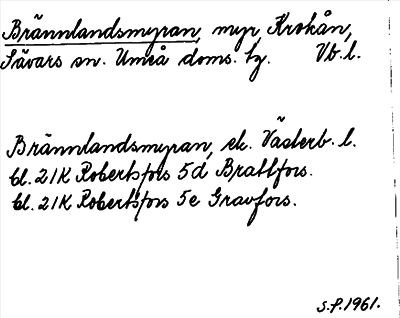 Brännlandsmyran, myr, Krokån,
Sävars sn. Umeå doms. tg. Vb.l.
Brännlandsmyran, ek. Västerb. l.
bl. 21K Robertsfors 5d Brattfors.
bl. 21K Robertsfors 5e Gravfors.
S.P. 1961.